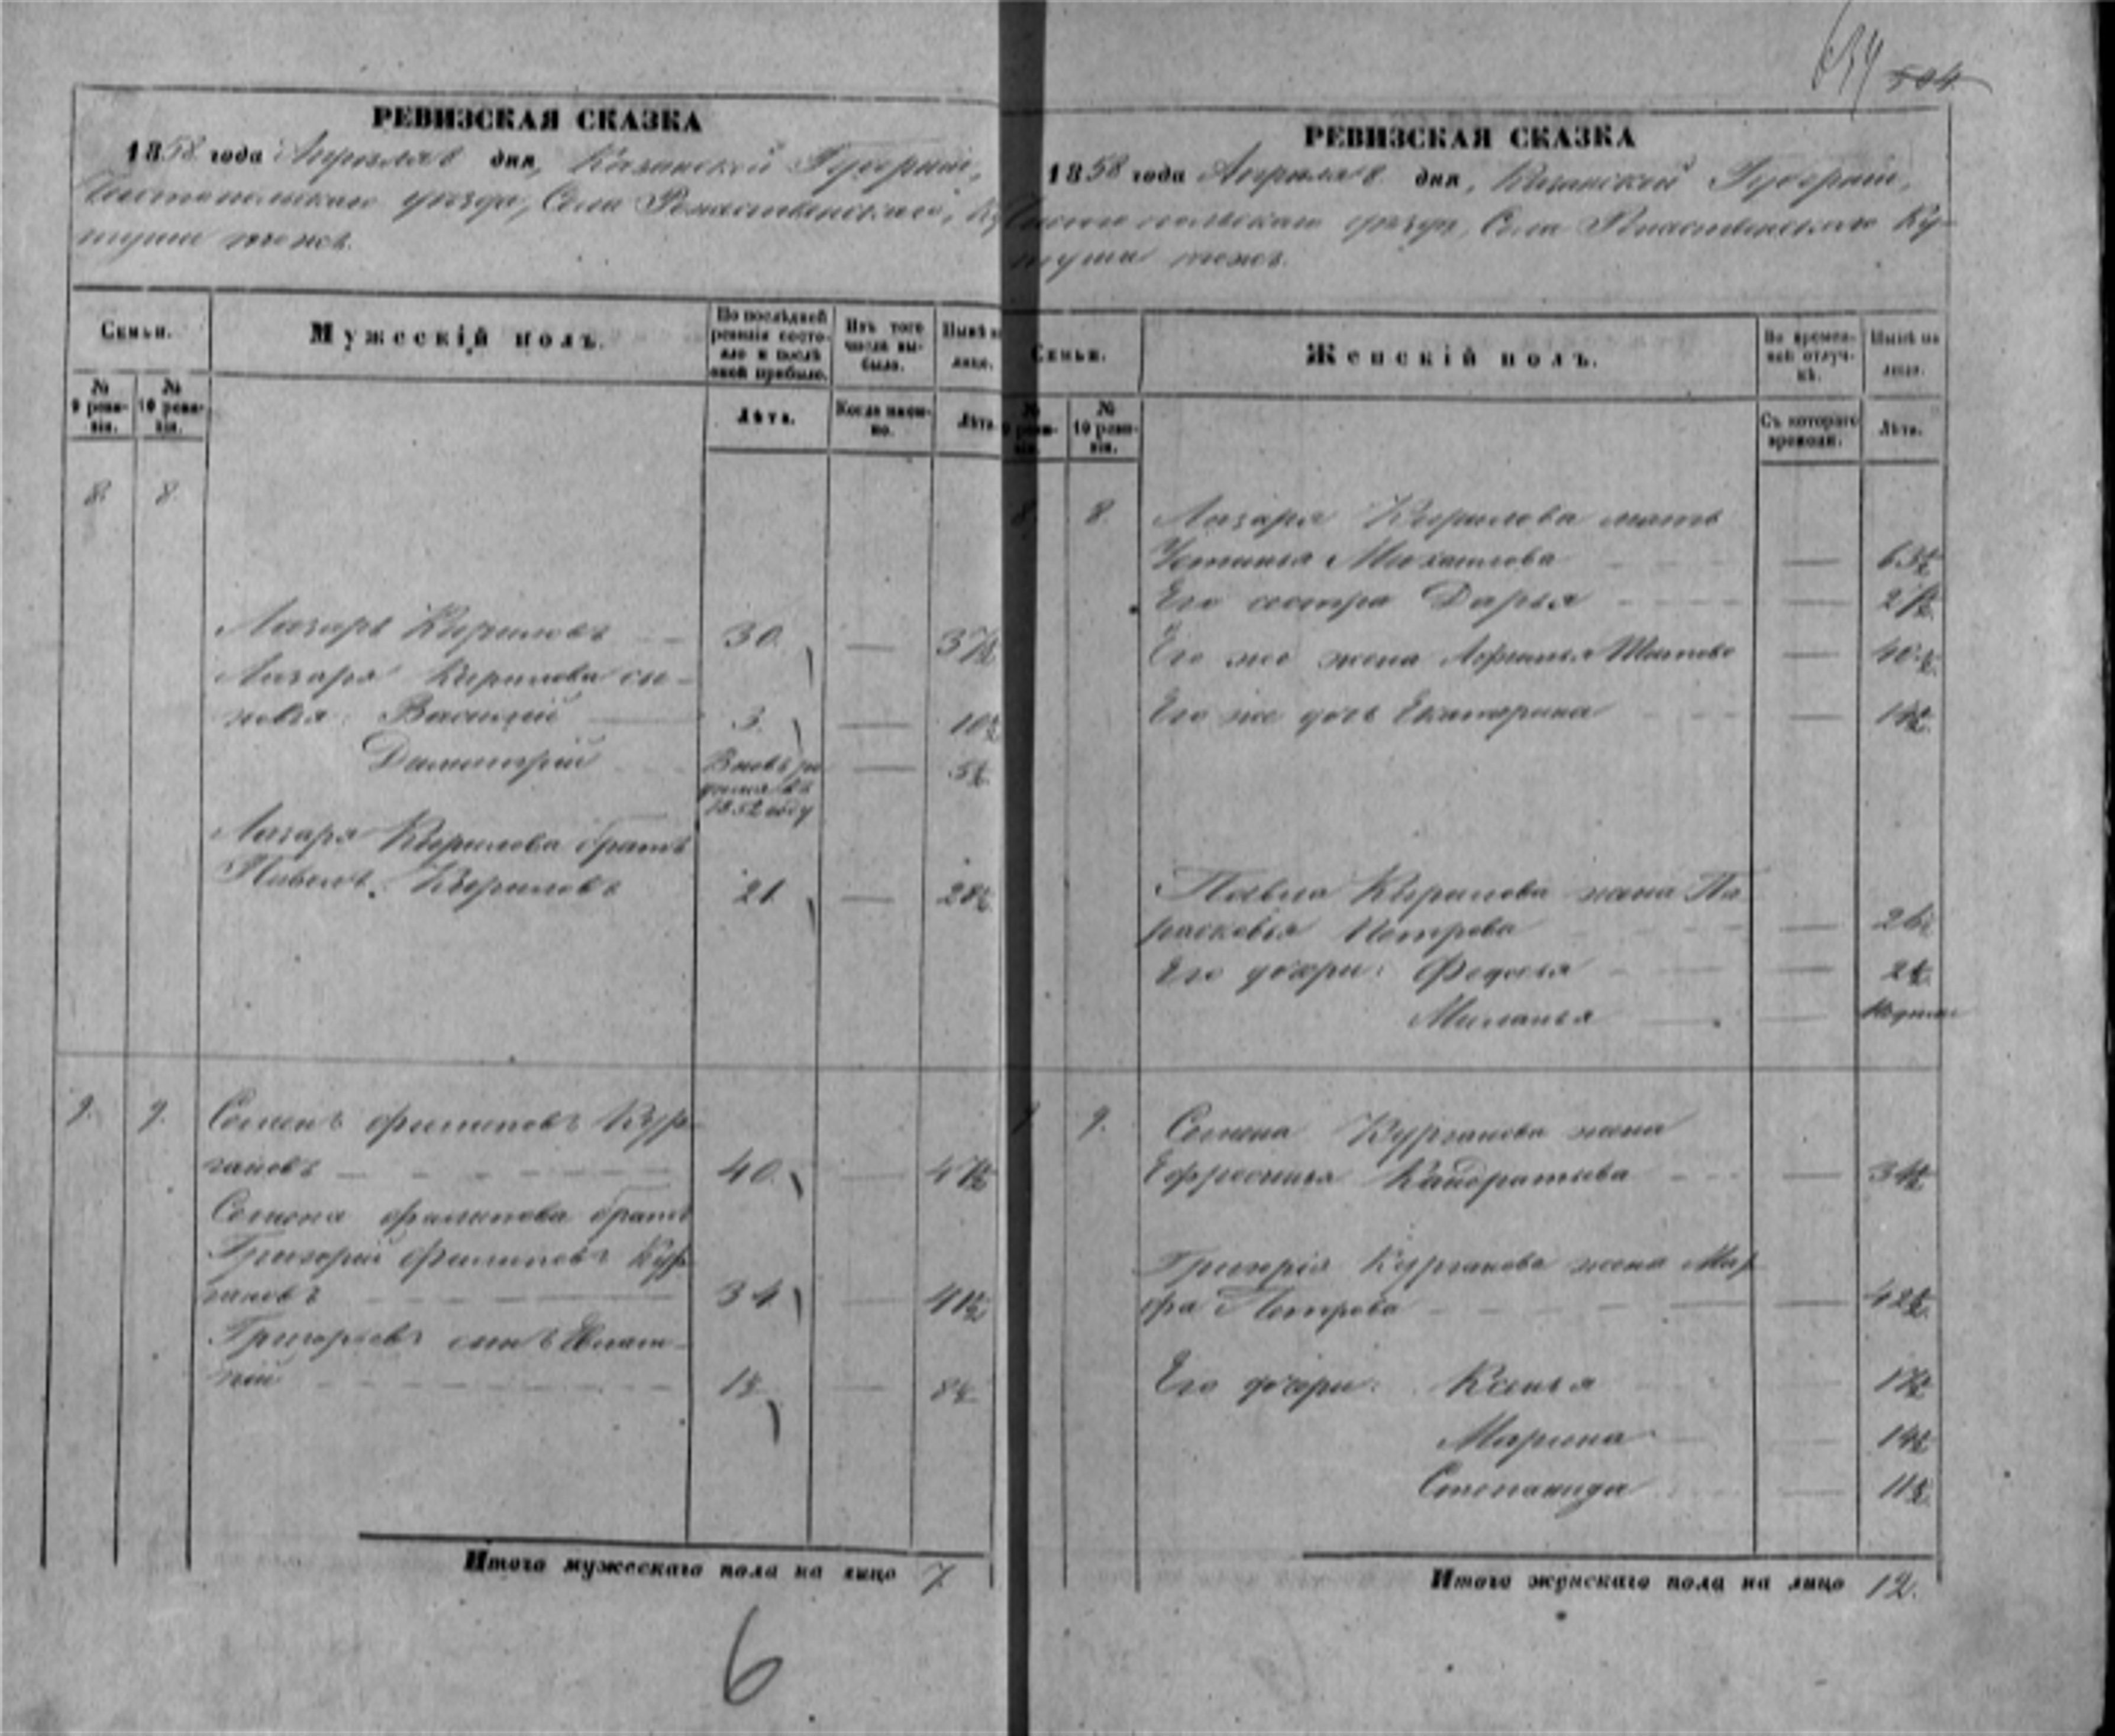 634 504
РЕВИЗСКАЯ СКАЗКА
1858 года Апреля 8 дня, Казанской Губернии,
Чистопольскаго уезда, Села Рождественскаго, Ку
туши тожъ.
Семьи.
Мужескій полъ.
По послѣдней ревизіи состояло и послѣ оной прибыло.
Изъ того числа выбыло.
Нынѣ на лицо.
№ 9 ревизіи.
№ 10 ревизіи.
Лѣта.
Когда именно.
Лѣта.
8. 8.
Лазарь Кириловъ 30. 37½
Лазаря Кирилова сы-
новья: Василий 3. 10½
Димитрий Вновь ро 5½
1852 году
Лазаря Кирилова братъ
Павелъ Кириловъ 21. 28½
9. 9. Семенъ Филиповъ Кур-
гановъ 40. 47½
Семена Филипова братъ
Григорий Филиповъ Кур-
гановъ 34 41½
Григорьевъ сынъ
1½ 8½
Итого мужескаго пола на лицо 7.
6
РЕВИЗСКАЯ СКАЗКА
1858 года Апреля 8 дня, Казанской Губернии,
Чистопольскаго уезда, Села Рождественскаго Ку-
туши тожъ.
Семьи.
Женскій полъ.
Во временной отлучкѣ.
Нынѣ на лицо.
№ 9 ревизіи.
№ 10 ревизіи.
Съ котораго времени.
Лѣта.
8 8. Лазаря Кирилова мать
Устинья Михаилова 63½
Его сестра Дарья
Его же жена 40½
Его же дочь Екатерина
Павла Кирилова жена Па
расковья Петрова 26½
Его дочери: Федосья 2½
Миланья
9 9. Семена Курганова жена
Ефросинья Кандратьева 34½
Григорія Курганова жена Мар
фа Петрова 42½
Его дочери: Ксенья 17½
Марина 14½
Степанида 11½
Итого женскаго пола на лицо 12.